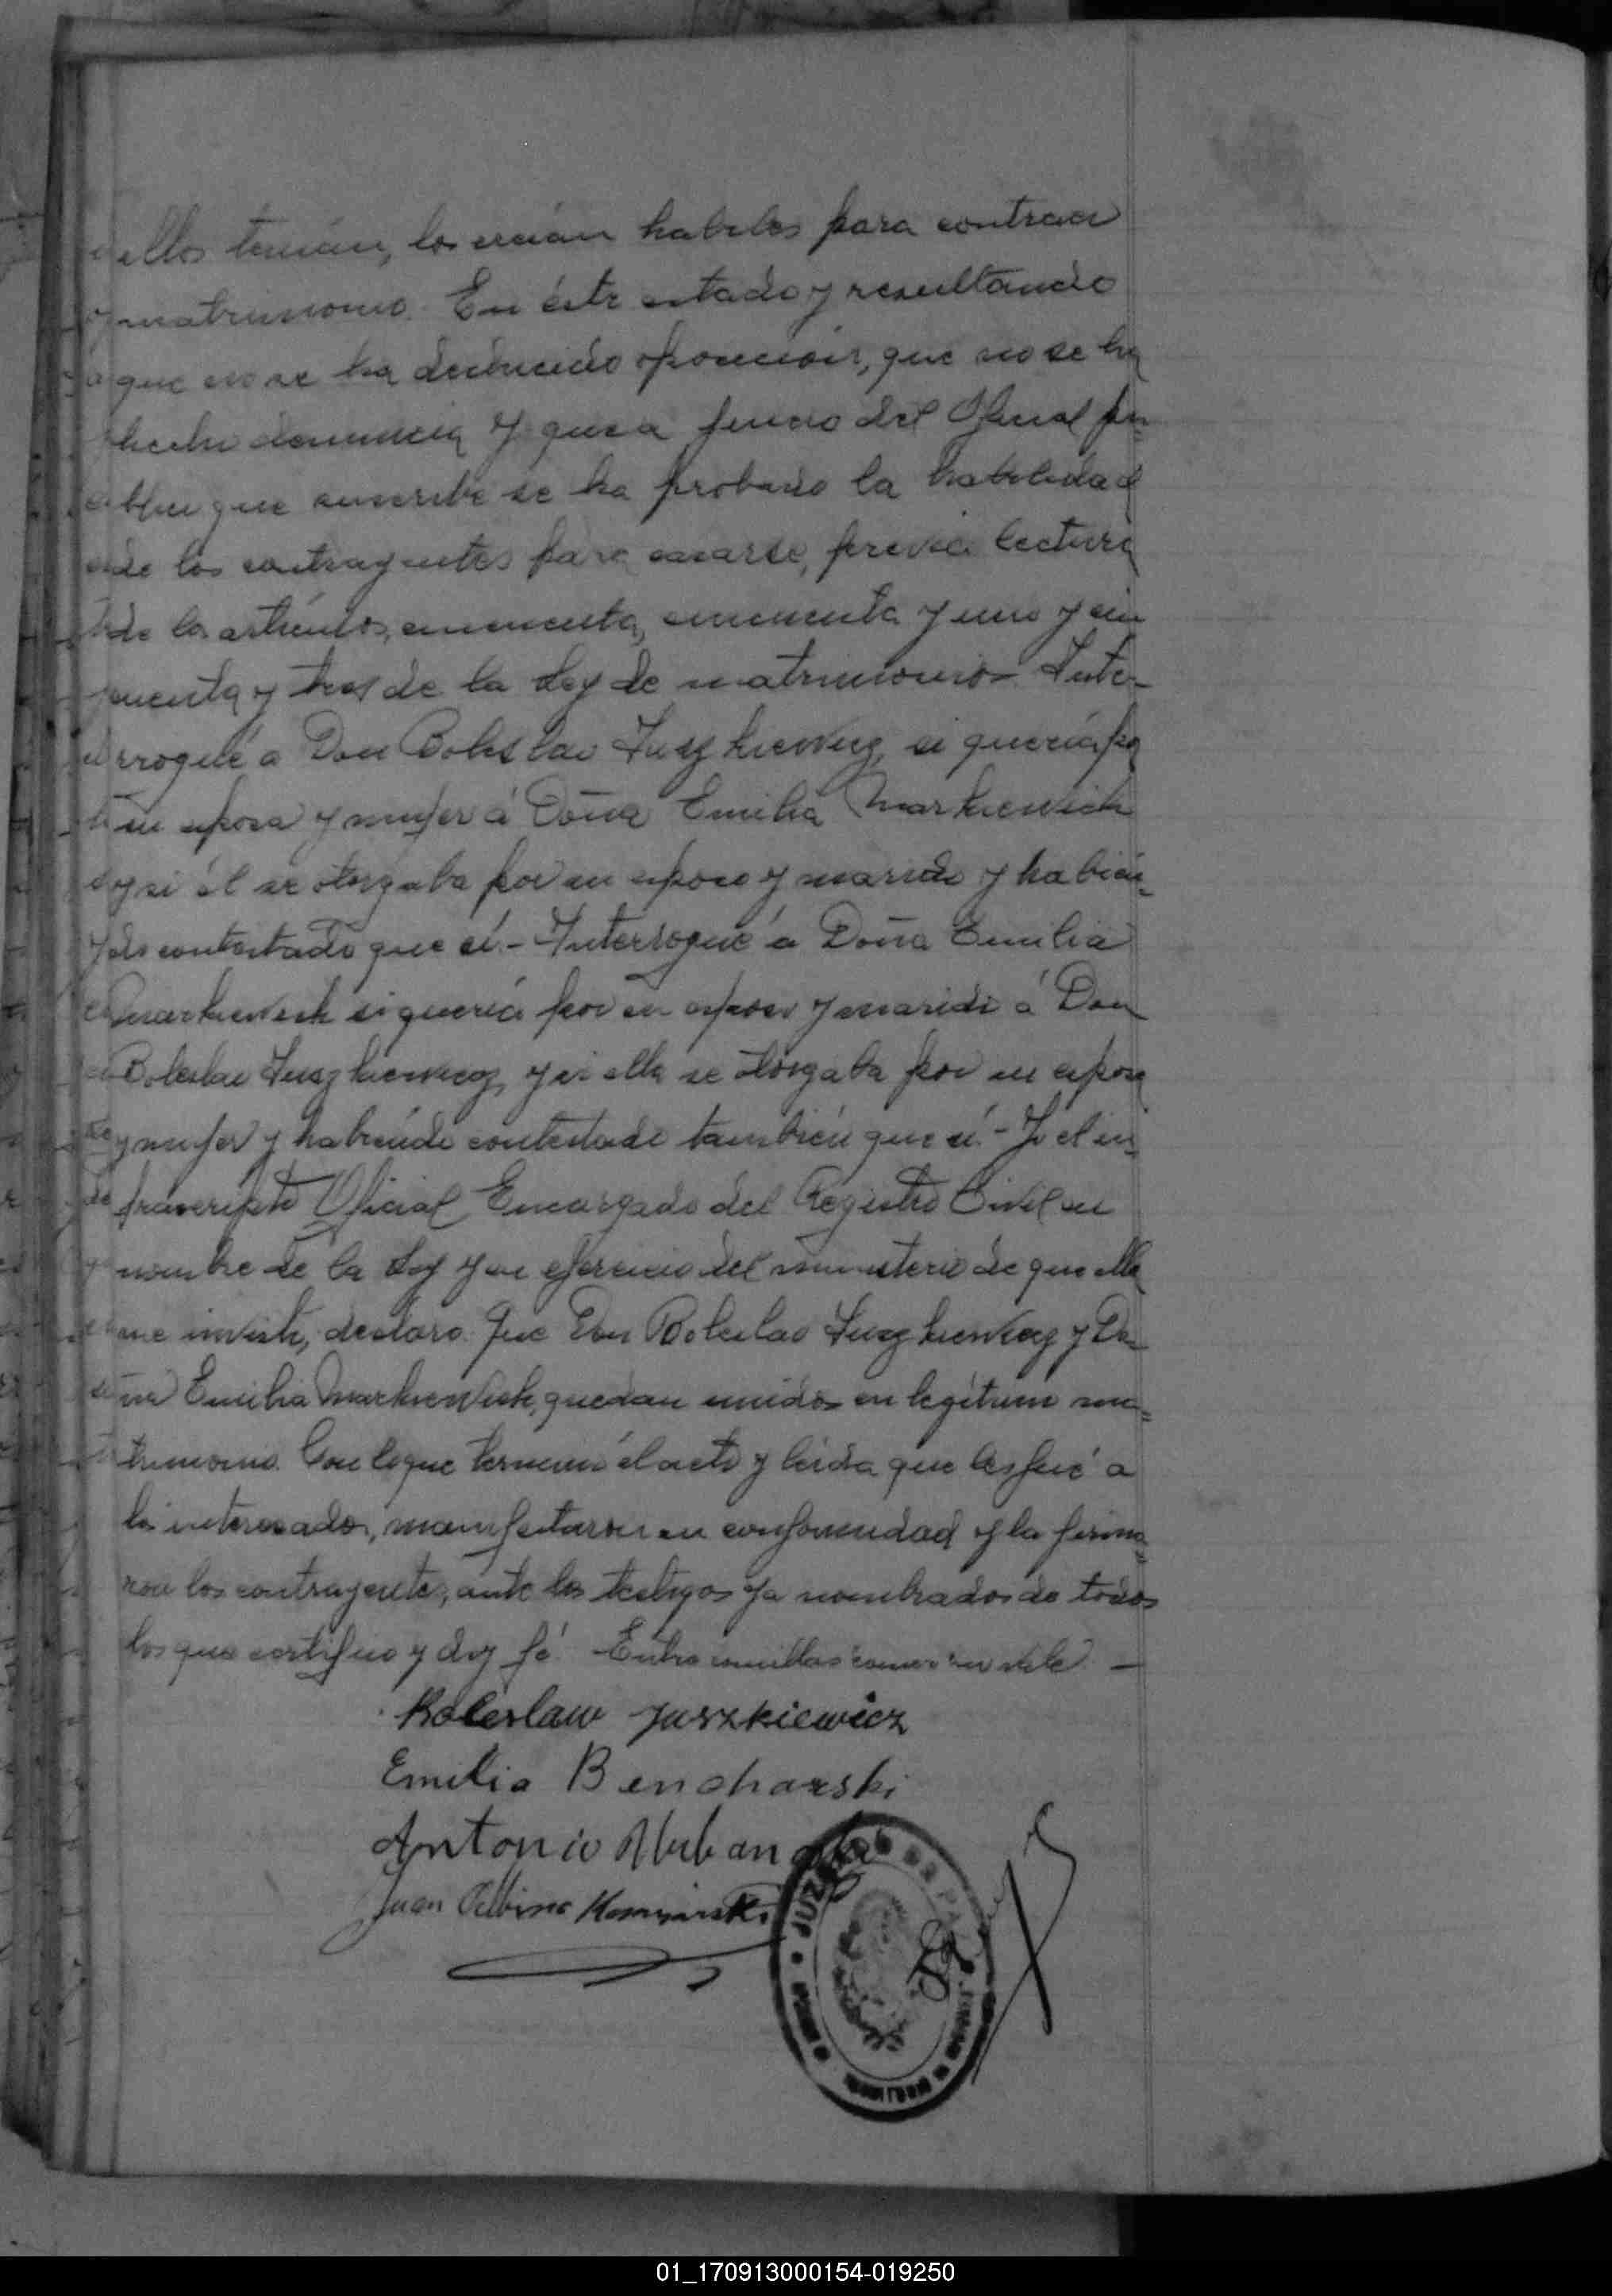 ellos tenían, los creían habiles para contraer
matrimonio. En éste estado y resultando
que no se ha deducido oposición, que no se ha
hecho denuncia y que a juicio del Oficial pú=
blico que suscribe se ha probado la habilidad
de los contrayentes para casarse, previa lectura
de los artículos, cincuenta, cincuenta y uno y cin
cuenta y tres de la Ley de matrimonio. Inte-
rrogué a Don Boleslao Juszkiewicz, si quería por
su esposa y mujer á Doña Emilia Markewich
y si él se otorgaba por su esposo y marido y habién=
do contestado que sí.- Interrogué a Doña Emilia
Markewich si quería por su esposo y marido á Don
Boleslao Juszkiewicz, y si ella se otorgaba por su esposa
y mujer y habiendo contestado también que sí.- Yo el in=
frascripto Oficial Encargado del Registro Civil en
nombre de la Ley y en ejercicio del ministerio de que ella
me inviste, declaro: Que Don Boleslao Juszkiewicz y Do=
ña Emilia Markewich, quedan unidos en legítimo ma=
trimonio. Con lo que terminó el acto y leída que les fué a
los interesados, manifestaron su conformidad y la firma=
ron los contrayentes, ante los testigos ya nombrados de todos
los que certifico y doy fé. Entre comillas no vale. —
Boleslaw Juszkiewicz
Emilia Bencharski
Antonio
Juan Albino
JUZGADO DE PAZ
01_170913000154-019250